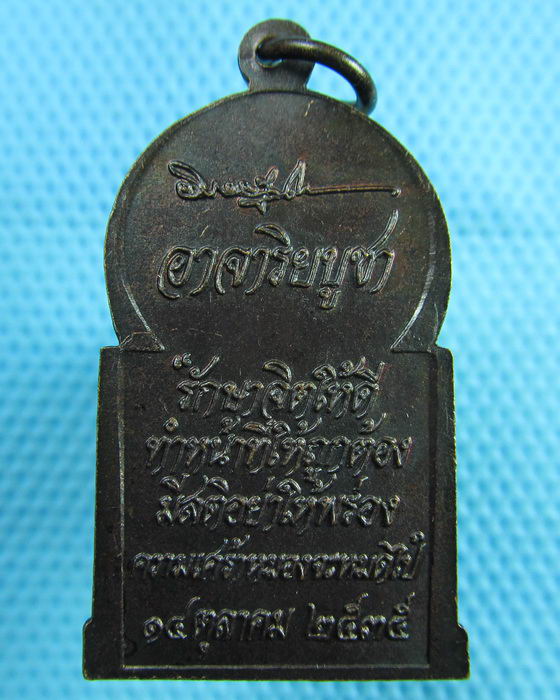 อาจาริยบูชา
“รักษาจิตให้ดี
ทำหน้าที่ให้ถูกต้อง
มีสติอย่าให้พร่อง
ความเศร้าหมองจะหมดไป
๑๔ ตุลาคม ๒๕๓๕